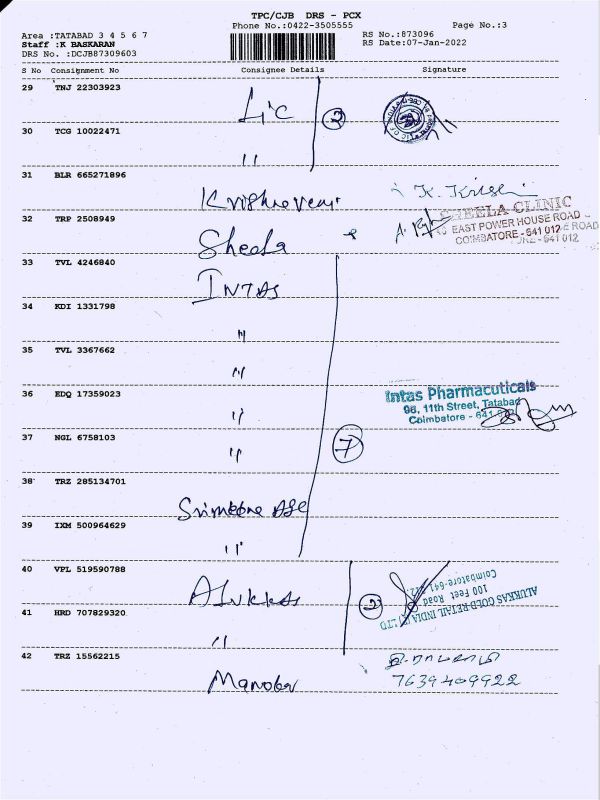 TPC/CJB DRS - PCX
Phone No.:0422-3505555
Page No.:3
Area :TATABAD 3 4 5 6 7
Staff :K BASKARAN
DRS No. :DCJB87309603
RS No.:873096
RS Date:07-Jan-2022
S No Consignment No Consignee Details Signature
29 TNJ 22303923 Lic 2
30 TCG 10022471 "
31 BLR 665271896 Krishnaveni K. Krish
32 TRP 2508949 Sheela
SHEELA CLINIC
EAST POWER HOUSE ROAD
COIMBATORE - 641 012
33 TVL 4246840 INTAS
34 KDI 1331798 "
35 TVL 3367662 "
36 EDQ 17359023 "
Intas Pharmacuticals
98, 11th Street, Tatabad
Coimbatore - 641 012
37 NGL 6758103 " 7
38 TRZ 285134701
39 IXM 500964629 "
40 VPL 519590788 Alukkas 2
ALUKKAS GOLD RETAIL INDIA (P) LTD
100 Feet Road
Coimbatore-641
41 HRD 707829320 "
42 TRZ 15562215 Manober
7639409922